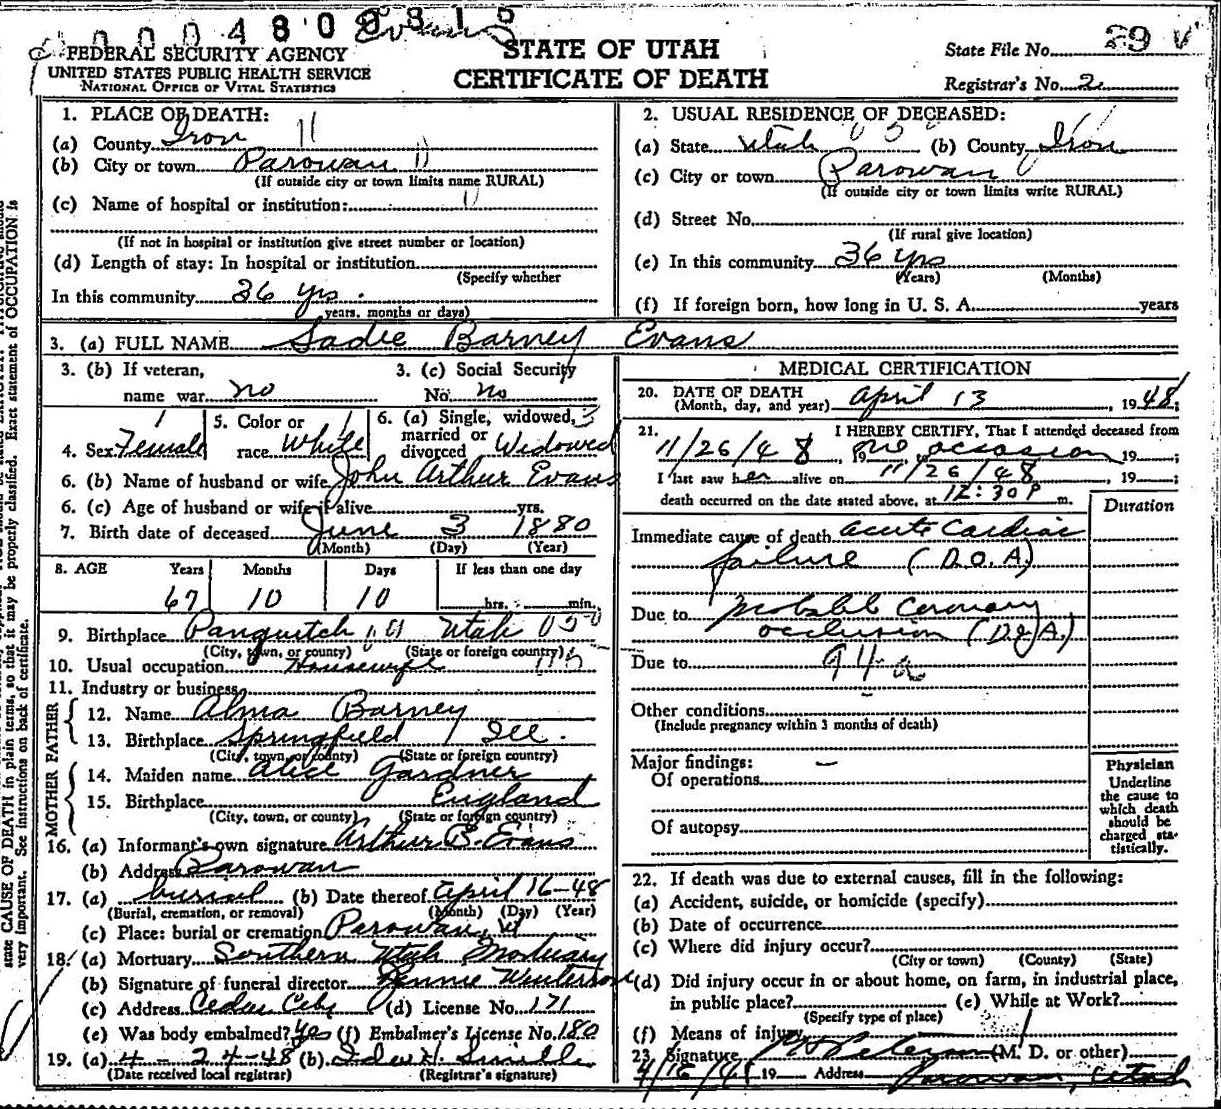 000480
Evans
FEDERAL SECURITY AGENCY
UNITED STATES PUBLIC HEALTH SERVICE
NATIONAL OFFICE OF VITAL STATISTICS
STATE OF UTAH
CERTIFICATE OF DEATH
State File No. 29 V
Registrar's No. 2
1. PLACE OF DEATH:
(a) County Iron 11
(b) City or town Parowan 11
(If outside city or town limits name RURAL)
(c) Name of hospital or institution:
(If not in hospital or institution give street number or location)
(d) Length of stay: In hospital or institution
(Specify whether
In this community 36 yrs.
years, months or days)
2. USUAL RESIDENCE OF DECEASED:
(a) State Utah (b) County Iron
(c) City or town Parowan
(If outside city or town limits write RURAL)
(d) Street No.
(If rural give location)
(e) In this community 36 yrs
(Years) (Months)
(f) If foreign born, how long in U. S. A. years
3. (a) FULL NAME Sadie Barney Evans
3. (b) If veteran, 3. (c) Social Security
name war no No. No
4. Sex Female 5. Color or race White 6. (a) Single, widowed, married or divorced Widowed
6. (b) Name of husband or wife John Arthur Evans
6. (c) Age of husband or wife if alive yrs.
7. Birth date of deceased June 3 1880
(Month) (Day) (Year)
8. AGE Years Months Days If less than one day
67 10 10 hrs. min.
9. Birthplace Panguitch Utah
(City, town, or county) (State or foreign country)
10. Usual occupation Housewife
11. Industry or business
FATHER
12. Name Alma Barney
13. Birthplace Springfield Ill.
(City, town, or county) (State or foreign country)
MOTHER
14. Maiden name Alice Gardner
15. Birthplace England
(City, town, or county) (State or foreign country)
16. (a) Informant's own signature Arthur B. Evans
(b) Address Parowan
17. (a) burial (b) Date thereof April 16-48
(Burial, cremation, or removal) (Month) (Day) (Year)
(c) Place: burial or cremation Parowan, Ut
18. (a) Mortuary Southern Utah Mortuary
(b) Signature of funeral director
(c) Address Cedar City (d) License No. 171
(e) Was body embalmed? yes (f) Embalmer's License No. 180
19. (a) 4-24-48 (b)
(Date received local registrar) (Registrar's signature)
MEDICAL CERTIFICATION
20. DATE OF DEATH
(Month, day, and year) April 13, 1948;
21. I HEREBY CERTIFY, That I attended deceased from
11/26/48, 19 one occasion, 19 ;
I last saw her alive on 11/26/48, 19 ;
death occurred on the date stated above, at 12:30 P m.
Duration
Immediate cause of death acute cardiac
failure (D.O.A)
Due to probable coronary
occlusion (D.O.A.)
Due to 94-a
Other conditions
(Include pregnancy within 3 months of death)
Major findings: —
Of operations
Of autopsy
Physician
Underline
the cause to
which death
should be
charged sta-
tistically.
22. If death was due to external causes, fill in the following:
(a) Accident, suicide, or homicide (specify)
(b) Date of occurrence
(c) Where did injury occur?
(City or town) (County) (State)
(d) Did injury occur in or about home, on farm, in industrial place,
in public place? (e) While at Work?
(Specify type of place)
(f) Means of injury
23. Signature (M. D. or other)
4/16/48 19 Address Parowan, Utah
state CAUSE OF DEATH in plain terms, so that it may be properly classified. Exact statement of OCCUPATION is
very important. See instructions on back of certificate.